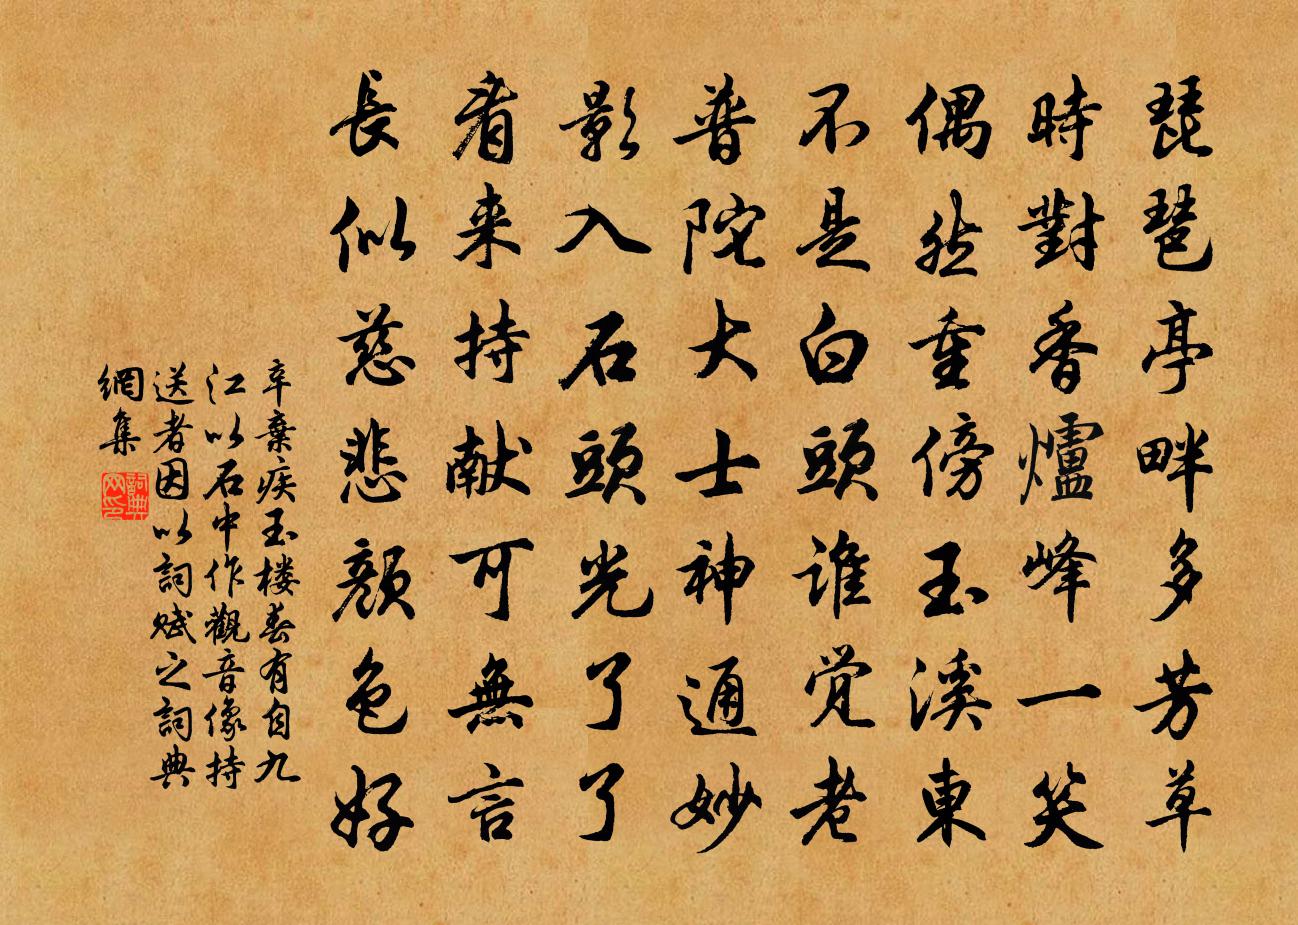 琵琶亭畔多芳草
時對香爐峰一笑
偶然重傍玉溪東
不是白頭誰覚老
普陀大士神通妙
影入石頭光了了
看来持献可無言
長似慈悲顔色好
辛棄疾玉楼春有自九
江以石中作觀音像持
送者因以詞賦之詞典
網集
詞典
网印